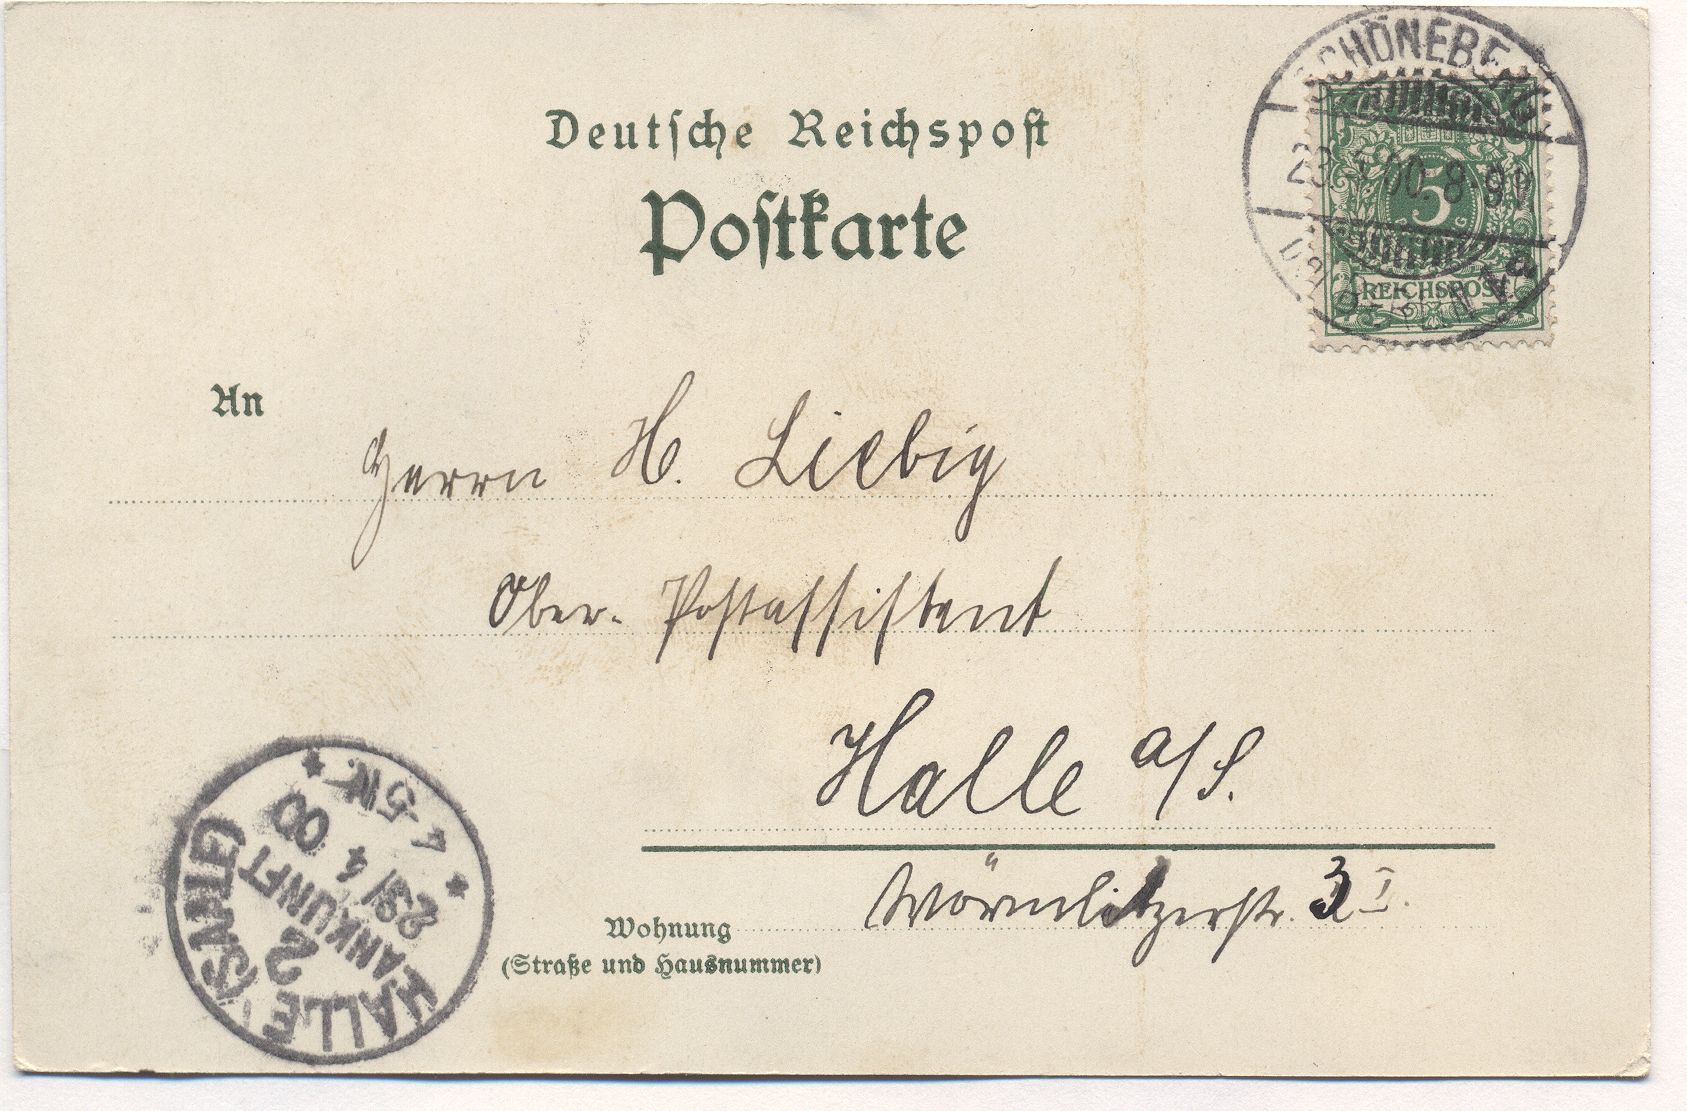 Deutsche Reichspost
Postkarte
SCHÖNEBERG
5
REICHSPOST
An
Herrn H. Liebig
Ober-Postassistent
Halle a/S.
Wörmlitzerstr. 3 I.
Wohnung
(Straße und Hausnummer)
HALLE (SAALE)
2
ANKUNFT
23/4 00
4-5N.